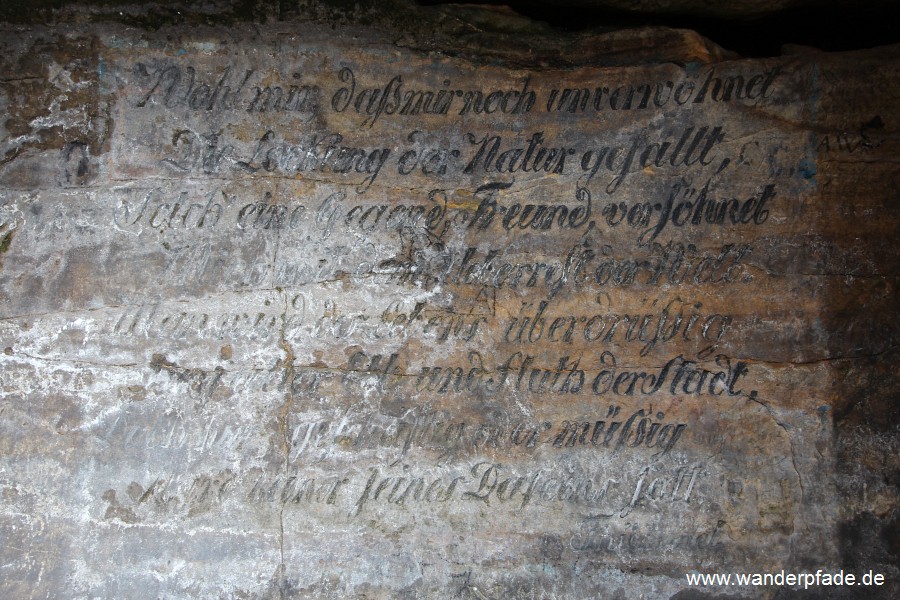 Wohl mir, daß mir noch unverwöhnet
Die Lockung der Natur gefällt,
Solch' eine Gegend, Freund, versöhnet
mit dem Ueberrest der Welt.
Man wird des Lebens überdrüßig
Ebb und Fluth der Stadt,
geschäftig oder müßig
seines Daseins satt
www.wanderpfade.de